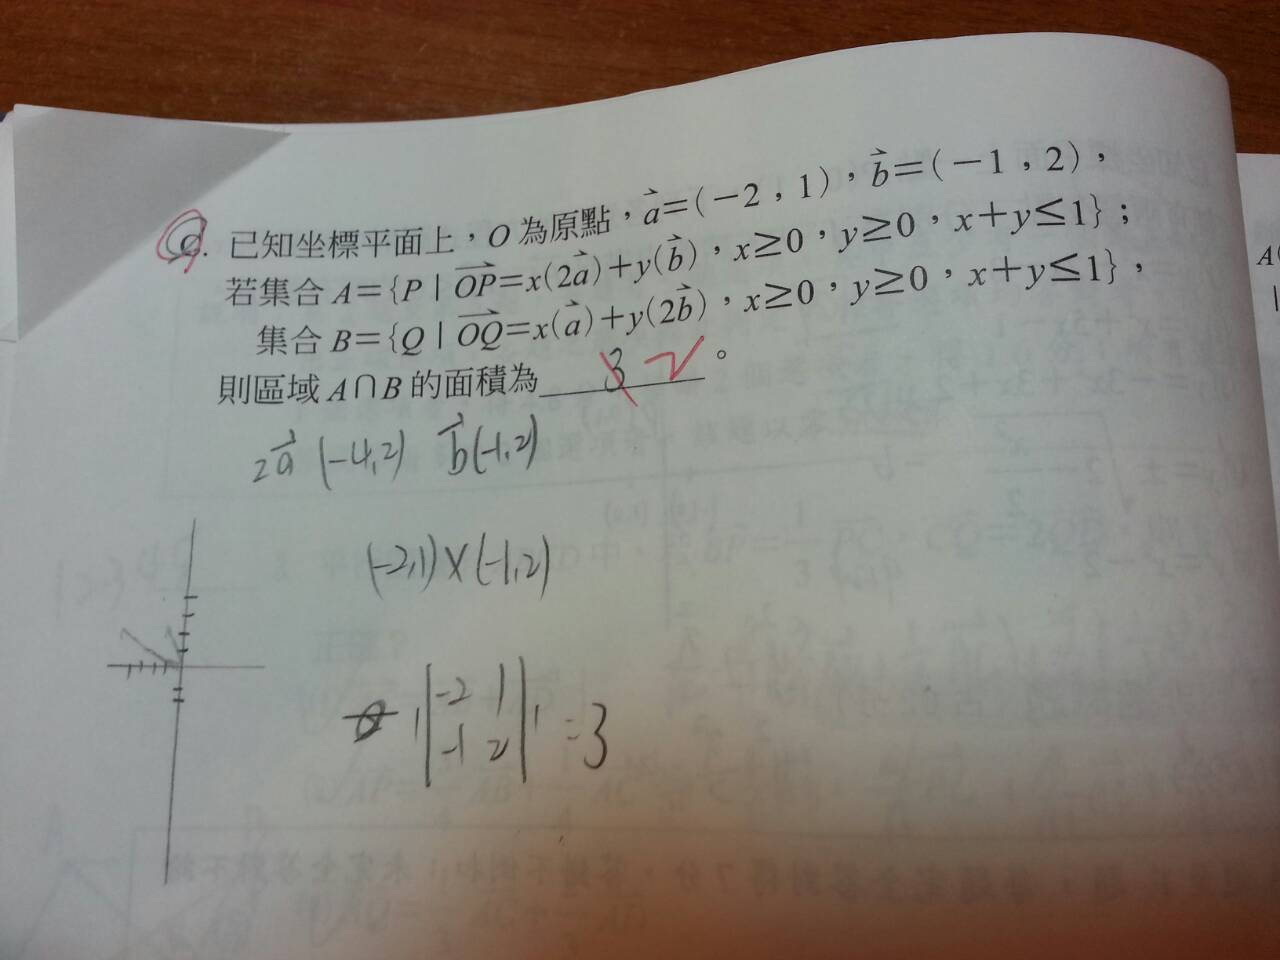 9. 已知坐標平面上，O 為原點，a⃗=(-2，1)，b⃗=(-1，2)，
若集合 A={P | OP⃗=x(2a⃗)+y(b⃗)，x≥0，y≥0，x+y≤1}；
集合 B={Q | OQ⃗=x(a⃗)+y(2b⃗)，x≥0，y≥0，x+y≤1}，
則區域 A∩B 的面積為 3 2 。
2a⃗ (-4,2) b⃗(-1,2)
(-2,1)×(-1,2)
| |-2 1
-1 2| | =3